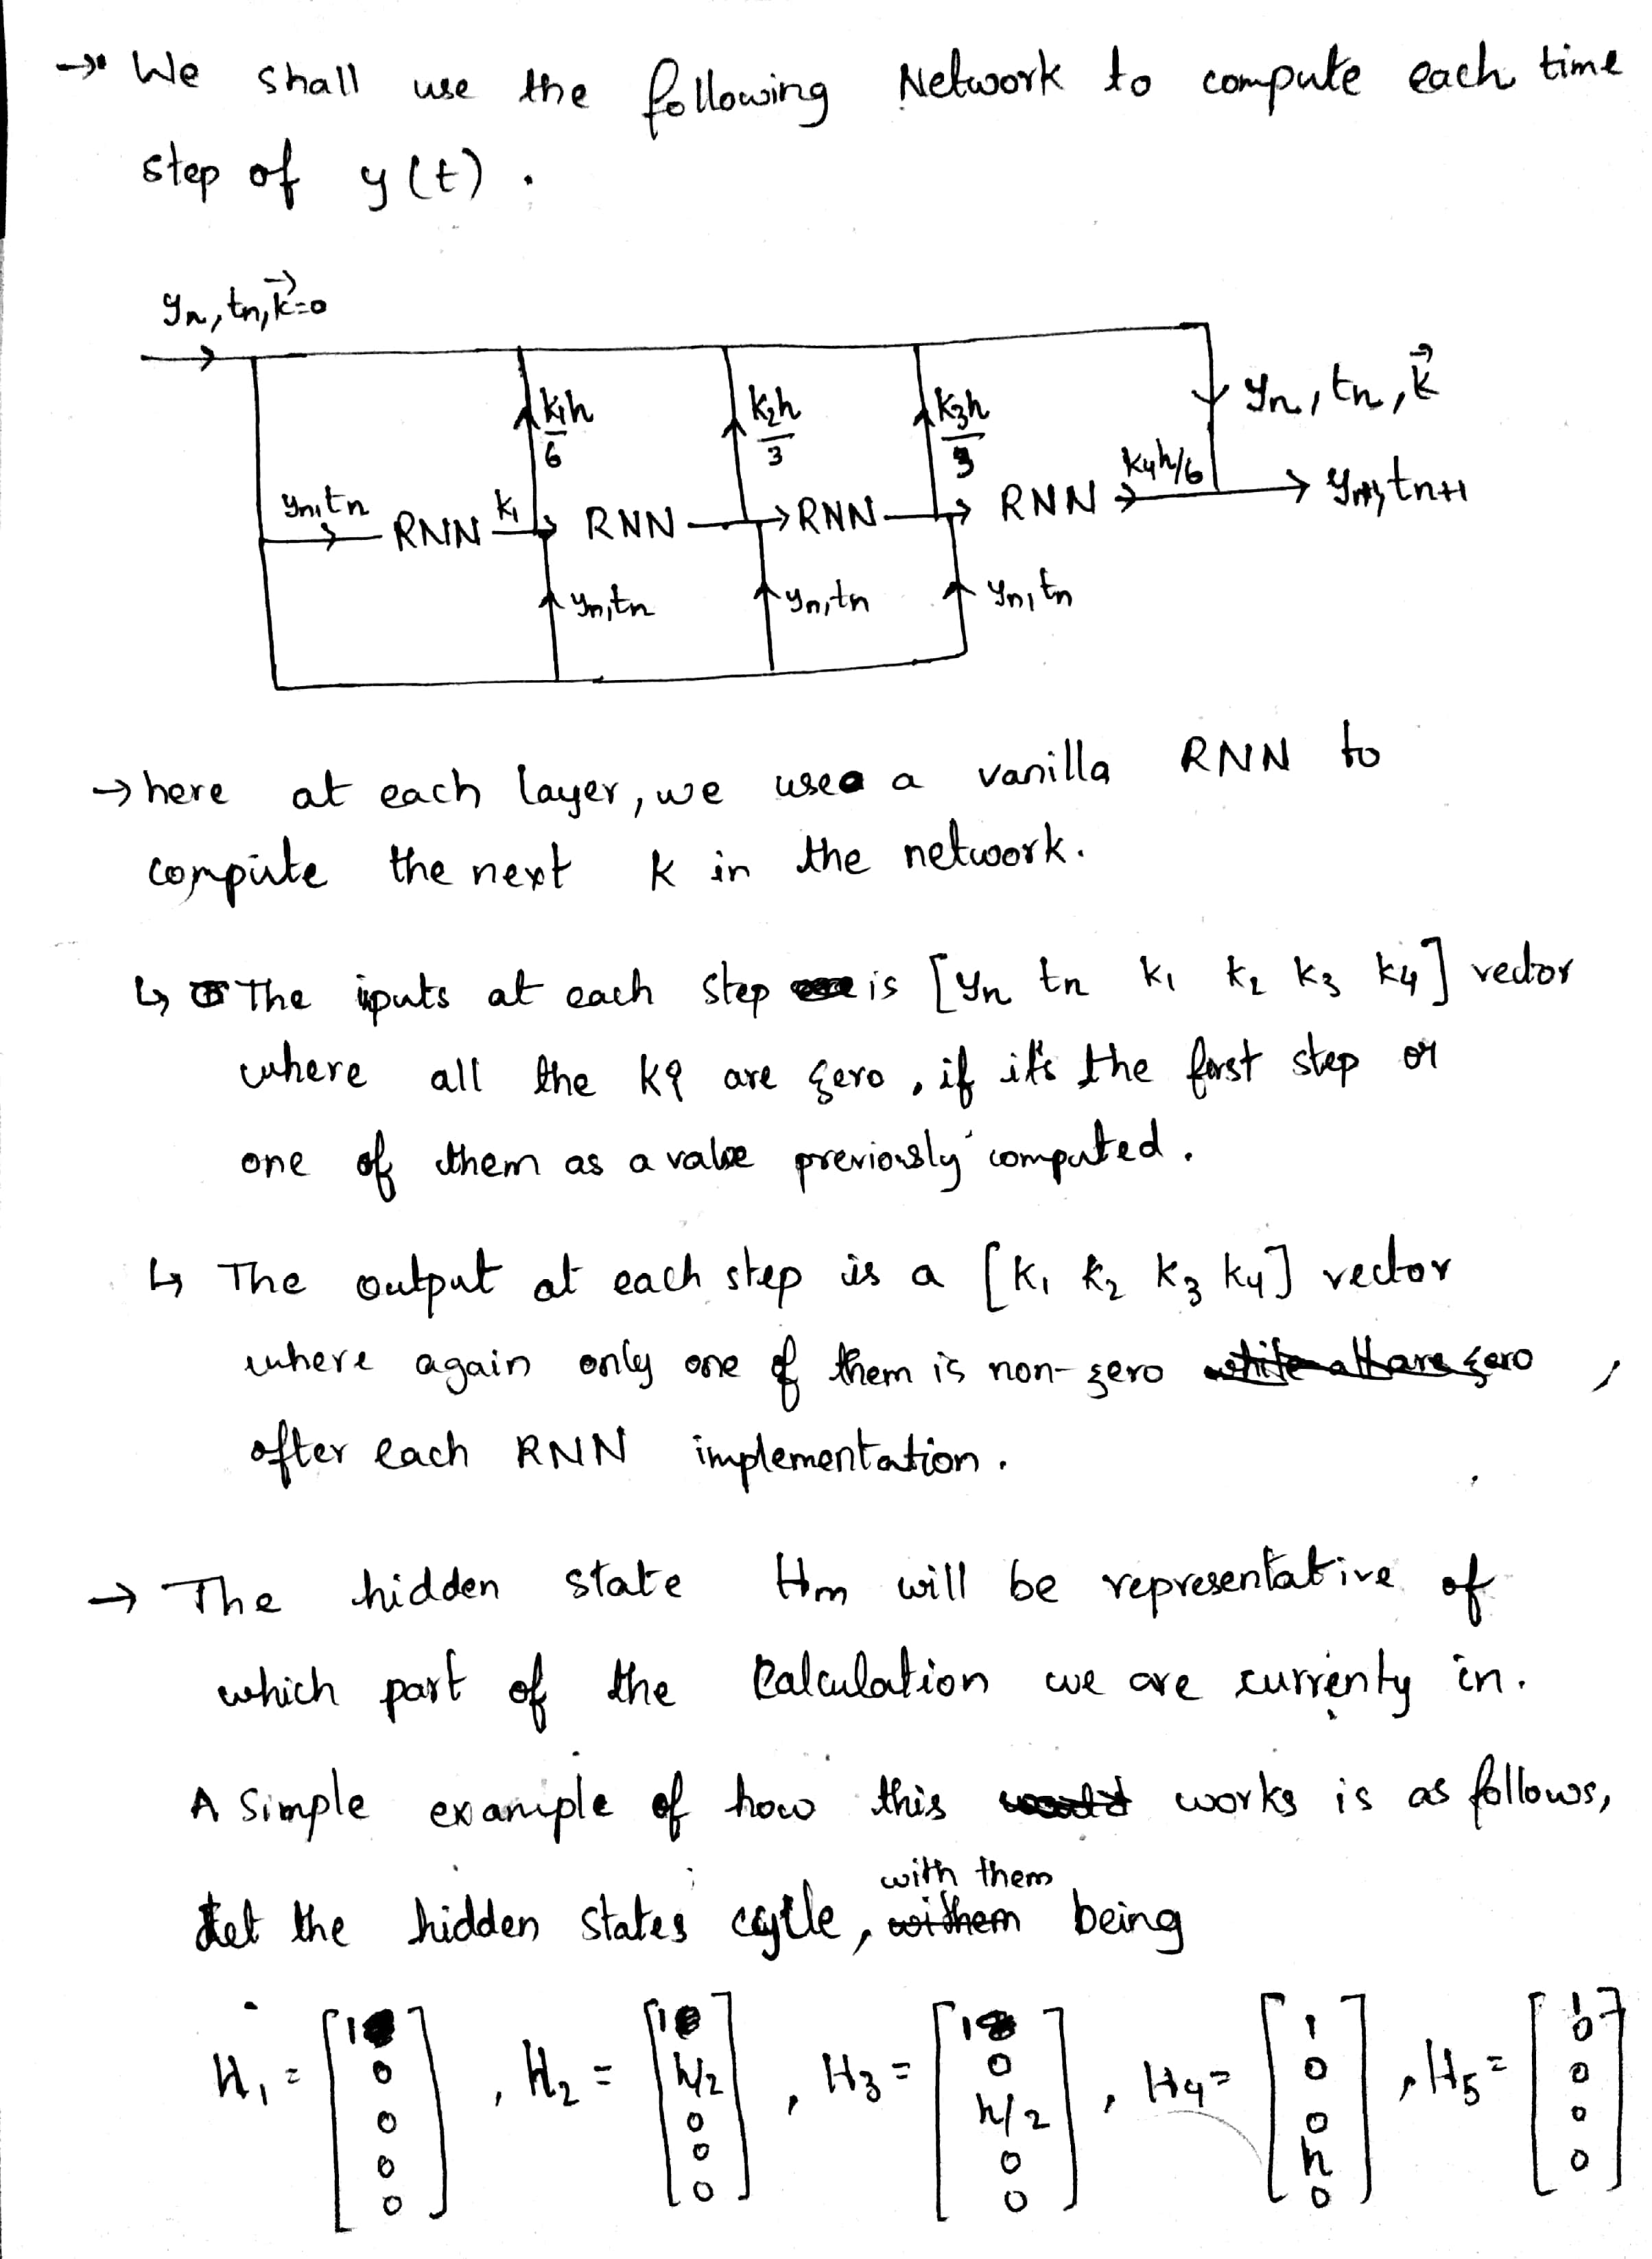 → We shall use the following Network to compute each time
step of y(t).
yn, tn, k⃗=0
k1h/6 k2h/3 k3h/3 yn, tn, k⃗
yn, tn RNN k1 RNN RNN RNN k4h/6 yn+1, tn+1
yn, tn yn, tn yn, tn
→ here at each layer, we use a vanilla RNN to
compute the next k in the network.
↳ The iputs at each step is [yn tn k1 k2 k3 k4] vector
where all the ki are zero, if it's the first step or
one of them as a value previously computed.
↳ The output at each step is a [k1 k2 k3 k4] vector
where again only one of them is non-zero while all are zero ,
after each RNN implementation.
→ The hidden state Hm will be representative of
which part of the Calculation we are currenty in.
A simple example of how this works is as follows,
let the hidden states cycle, with them being
H1 = [1 0 0 0 0], H2 = [1 h/2 0 0 0], H3 = [1 0 h/2 0 0], H4 = [1 0 0 h 0], H5 = [1 0 0 0 0]